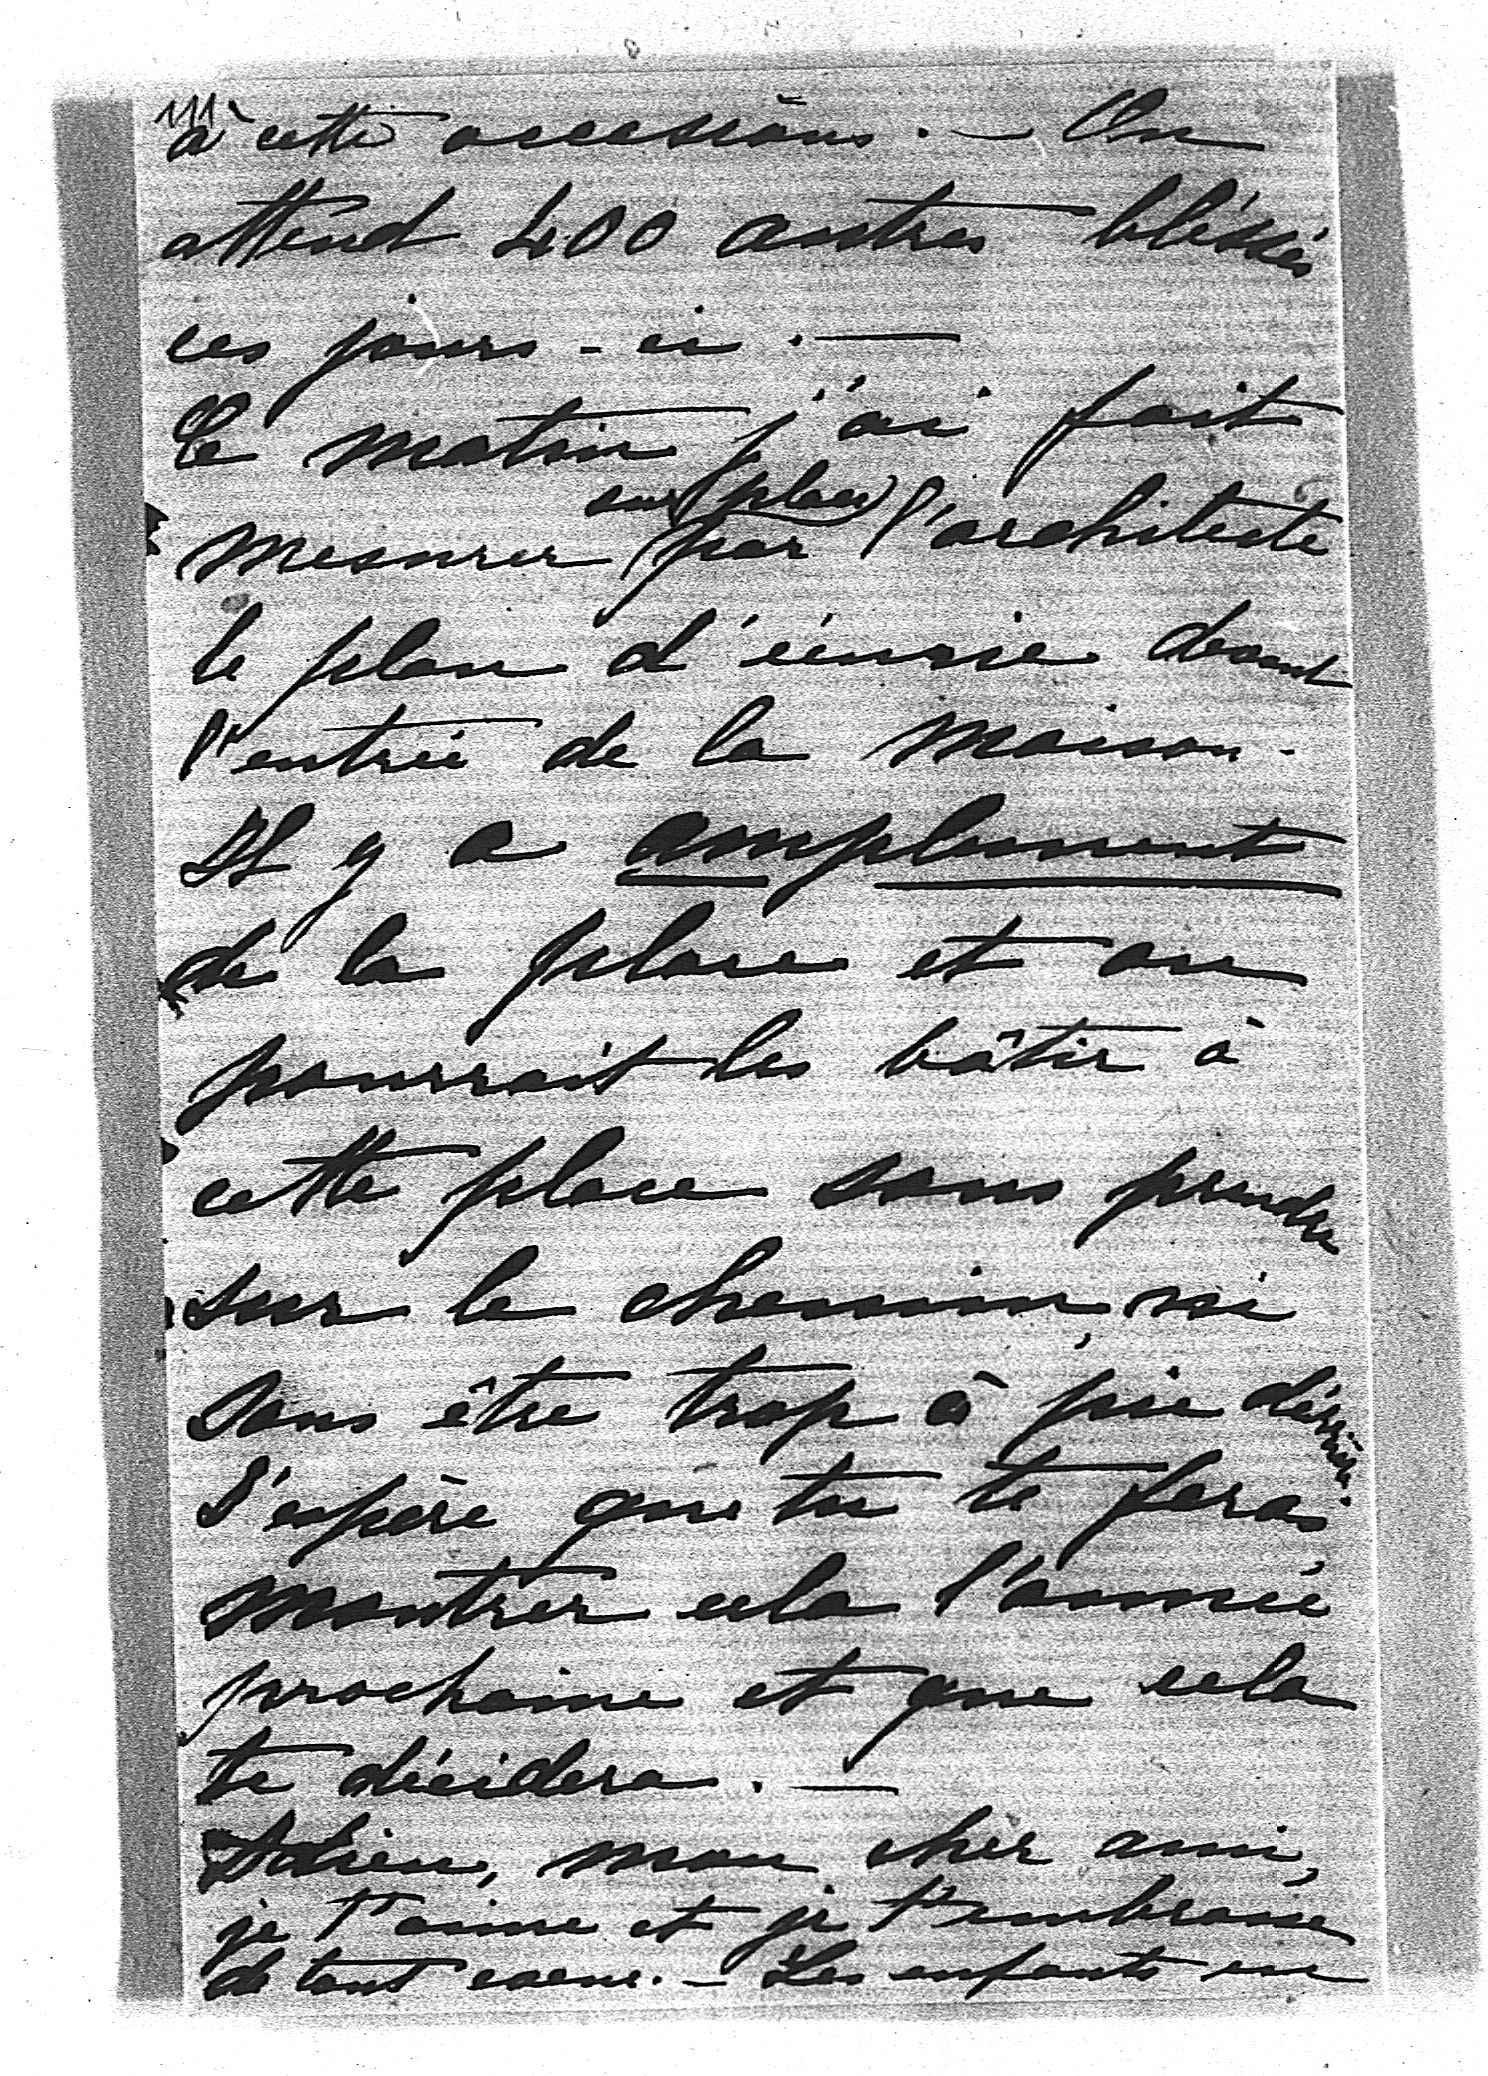 111
à cette occasions. — On
attend 400 autres bléssés
ces jours-ci. —
Ce matin j'ai fait
sur place
mesurer par l'architecte
le plan d'écurie devant
l'entrée de la maison.
Il y a amplement
de la place et on
pourrait les bâtir à
cette place sans prendre
sur le chemin, ni
sans être trop à pic dérrière.
J'espère que tu te feras
montrer cela l'année
prochaine et que cela
te décidera. —
Adieu, mon cher ami,
je t'aime et je t'embrasse
de tout coeur. — Les enfants en